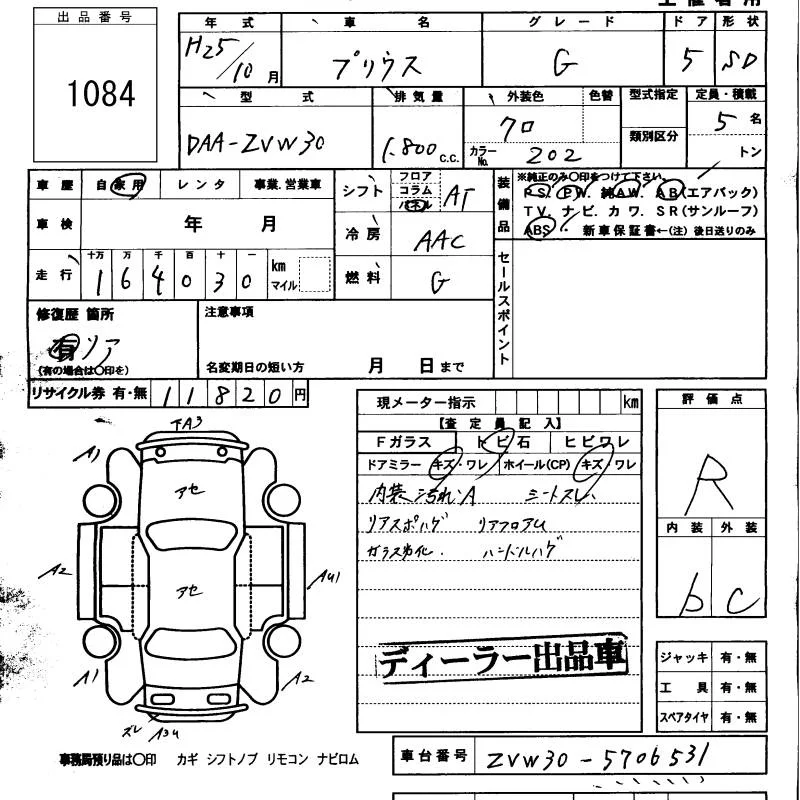 出品番号
1084
年式 車名 グレード ドア 形状
H25/10月 プリウス G 5 SD
型式 排気量 外装色 色替 型式指定 定員・積載
DAA-ZVW30 1.800 c.c. クロ 類別区分 5名
カラーNo. 202 トン
車歴 自家用 レンタ 事業.営業車
車検 年 月
走行 十万 万 千 百 十 一 km マイル
1 6 4 0 3 0
シフト フロア コラム パネル AT
冷房 AAC
燃料 G
装備品 ※純正のみ○印をつけて下さい。
PS. PW. 純AW. AB(エアバック)
TV. ナビ. カワ. SR(サンルーフ)
ABS 新車保証書←(注)後日送りのみ
セールスポイント
修復歴 箇所
有 リア
(有の場合は○印を)
注意事項
名変期日の短い方 月 日まで
リサイクル券 有・無 11820円
現メーター指示 km
【査定員記入】
Fガラス トビ石 ヒビワレ
ドアミラー キズ・ワレ ホイール(CP) キズ・ワレ
内装 汚れ.A シートスレ.
リアスポハゲ リアフロアム
ガラス劣化. ハンドルハゲ
ディーラー出品車
評価点
R
内装 外装
b C
ジャッキ 有・無
工具 有・無
スペアタイヤ 有・無
A1
アセ
A2
アセ
AU1
A1
A2
ズレ
事務局預り品は○印 カギ シフトノブ リモコン ナビロム
車台番号 ZVW30-5706531